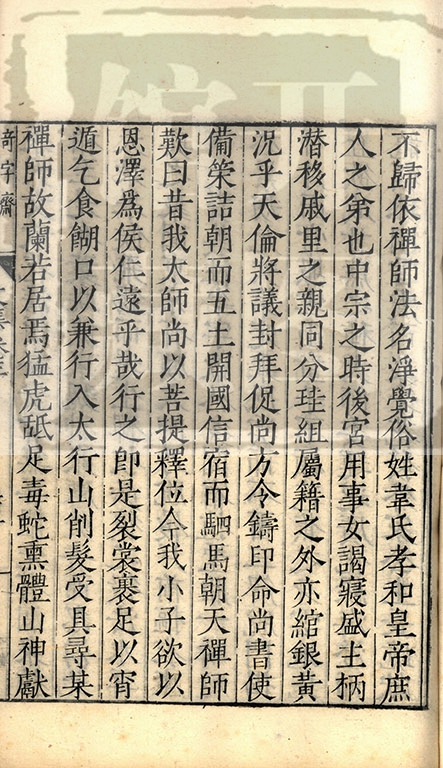 不歸依禪師法名淨覺俗姓韋氏孝和皇帝庶
人之弟也中宗之時後宮用事女謁寖盛主柄
潛移戚里之親同分珪組屬籍之外亦綰銀黃
況乎天倫將議封拜促尚方令鑄印命尚書使
備筞詰朝而五土開國信宿而駟馬朝天禪師
歎曰昔我太師尚以菩提釋位今我小子欲以
恩澤為侯仁遠乎哉行之卽是裂裳裹足以宵
遁乞食餬口以兼行入太行山削髮受具尋某
禪師故蘭若居焉猛虎舐足毒蛇熏體山神獻
奇字齋